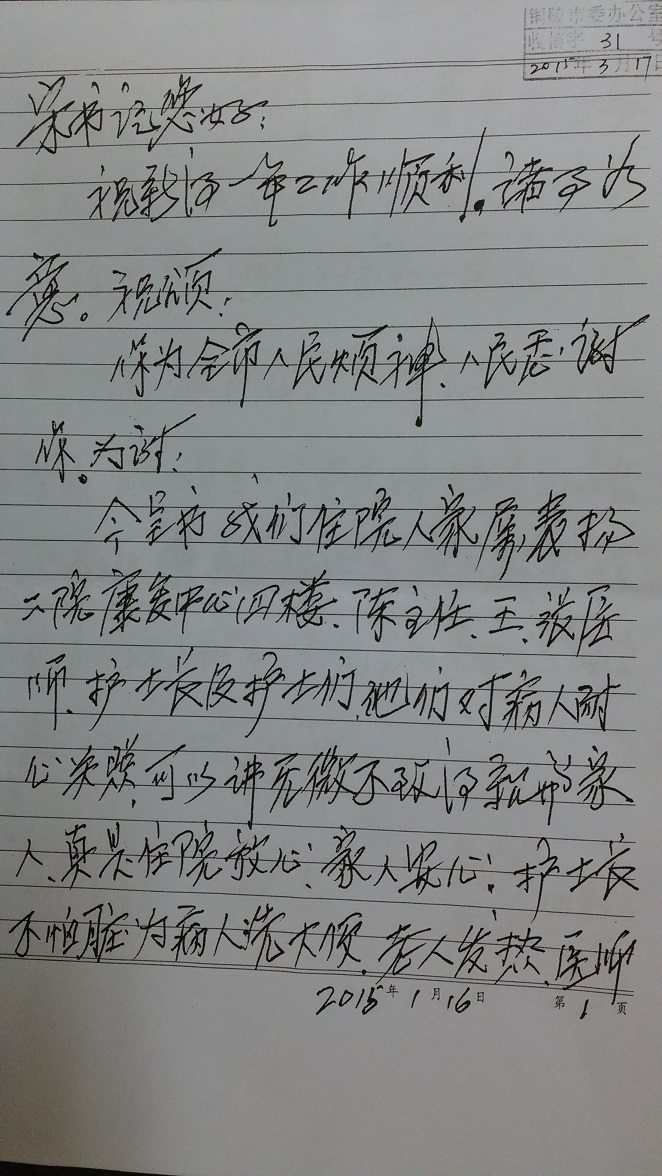 铜陵市委办公室
收信字 31 号
2015年3月17日
宋书记您好：
祝新的一年工作顺利。诸事如
意。祝颂：
你为全市人民烦神、人民悉谢
你。为谢：
今呈书我们住院人家属表扬
二院康复中心四楼、陈主任、王、张医
师、护士长及护士们，他们对病人耐
心
可以讲无微不致的
家
人、真是住院放心、家人安心。护士长
不怕脏为病人洗大便、老人发热、医师
2015年1月16日 第1页